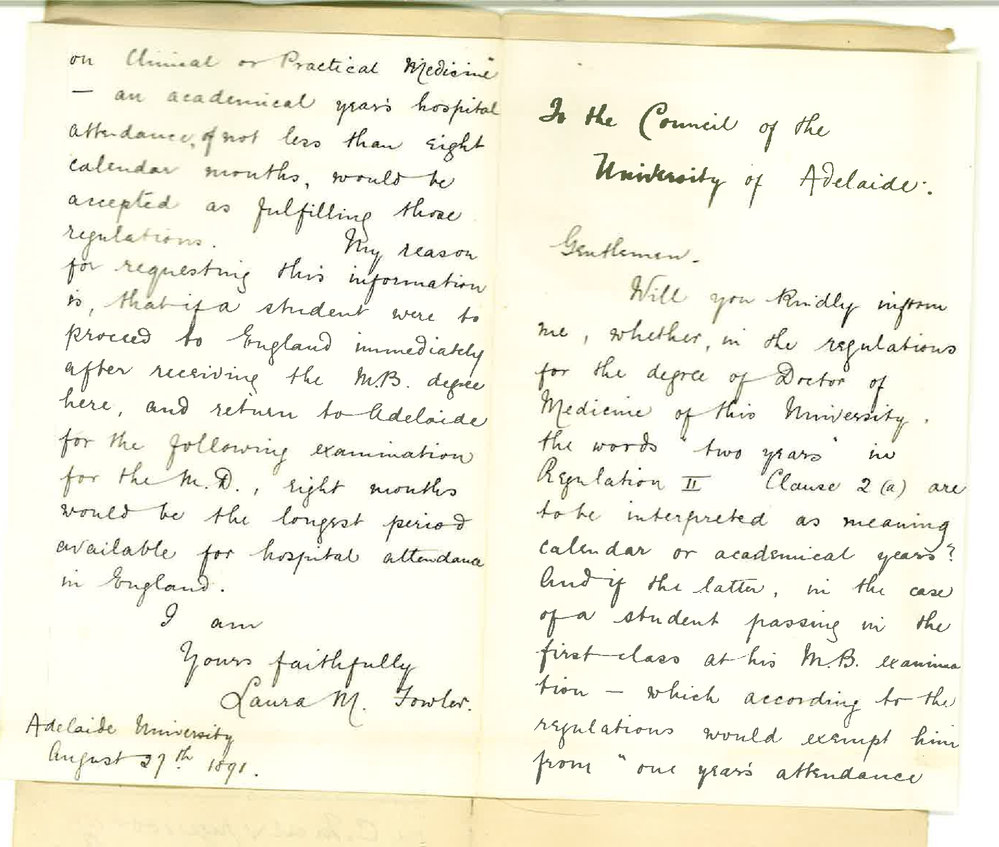 To the Council of the
University of Adelaide.
Gentlemen.
Will you kindly inform
me, whether, in the regulations
for the degree of Doctor of
Medicine of this University,
the words "two years" in
Regulation II Clause 2 (a) are
to be interpreted as meaning
calendar or academical years?
And if the latter, in the case
of a student passing in the
first class at his M.B. examina
tion — which according to the
regulations would exempt him
from "one year's attendance
on Clinical or Practical Medicine"
— an academical year's hospital
attendance, of not less than eight
calendar months, would be
accepted as fulfilling those
regulations. My reason
for requesting this information
is, that if a student were to
proceed to England immediately
after receiving the M.B. degree
here, and return to Adelaide
for the following examination
for the M.D., eight months
would be the longest period
available for hospital attendance
in England.
I am
Yours faithfully
Laura M. Fowler.
Adelaide University
August 27th 1891.